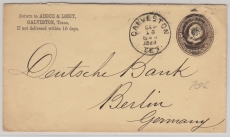 Return to
GALVESTON, Texas,
If not delivered within 10 days.
GALVESTON
TEX.
Deutsche Bank
Berlin
Germany